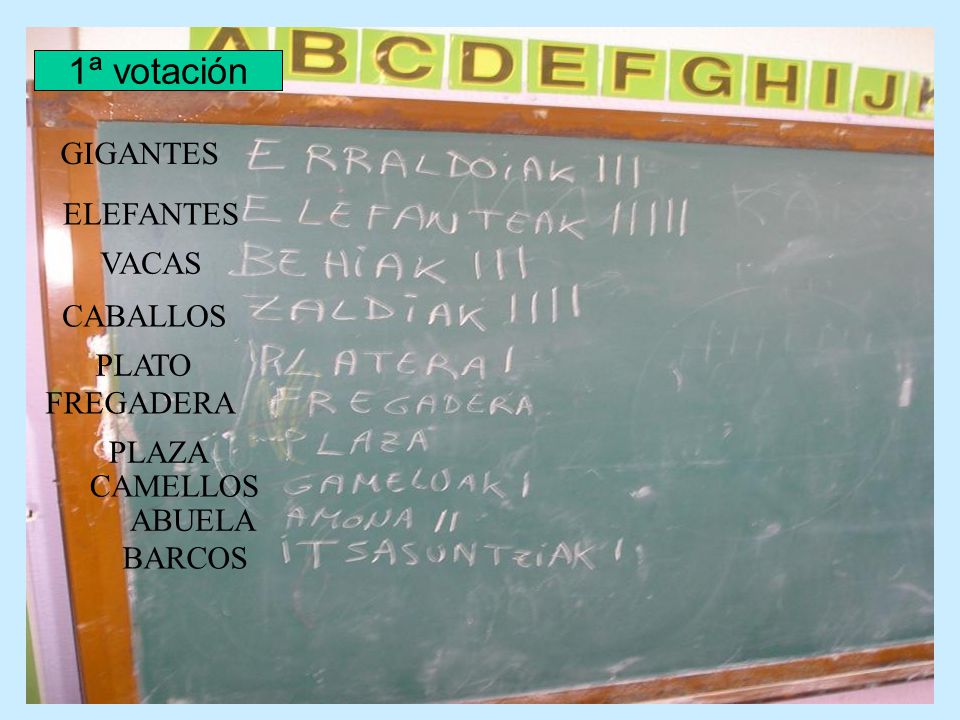 A B C D E F G H I J K
1ª votación
GIGANTES ERRALDOiAK III
ELEFANTES ELEFANTEAK IIIII
VACAS BEHiAK III
CABALLOS ZALDiAK IIII
PLATO PLATERA I
FREGADERA FREGADERA
PLAZA PLAZA
CAMELLOS GAMELUAK I
ABUELA AMONA II
BARCOS iTSASUNTZiAK I